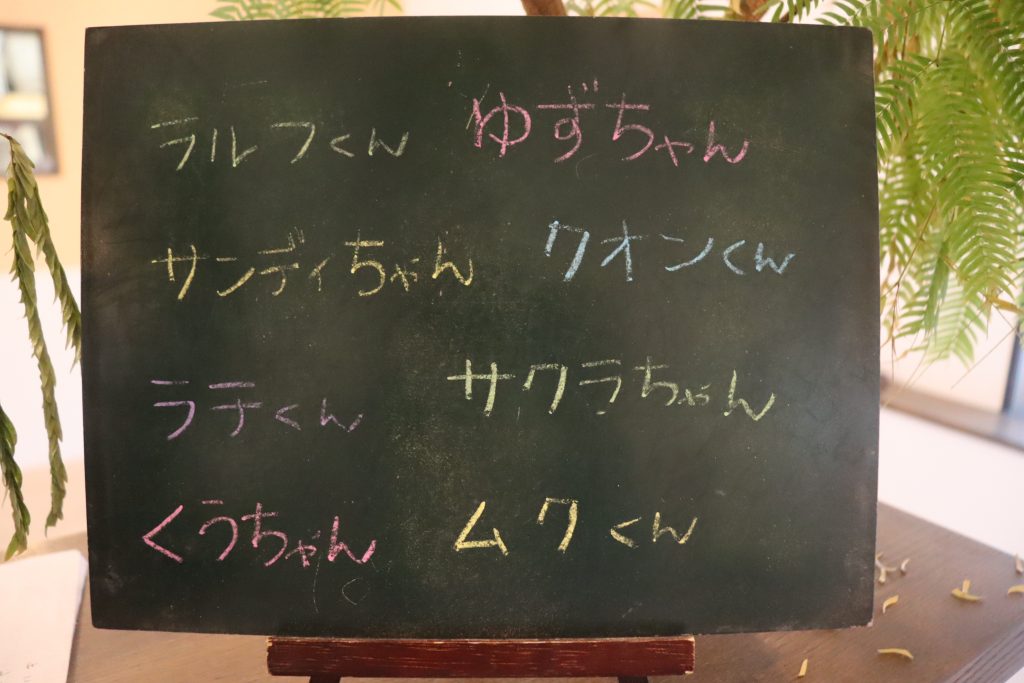 ラルフくん ゆずちゃん
サンディちゃん クオンくん
ラテくん サクラちゃん
くうちゃん ムクくん